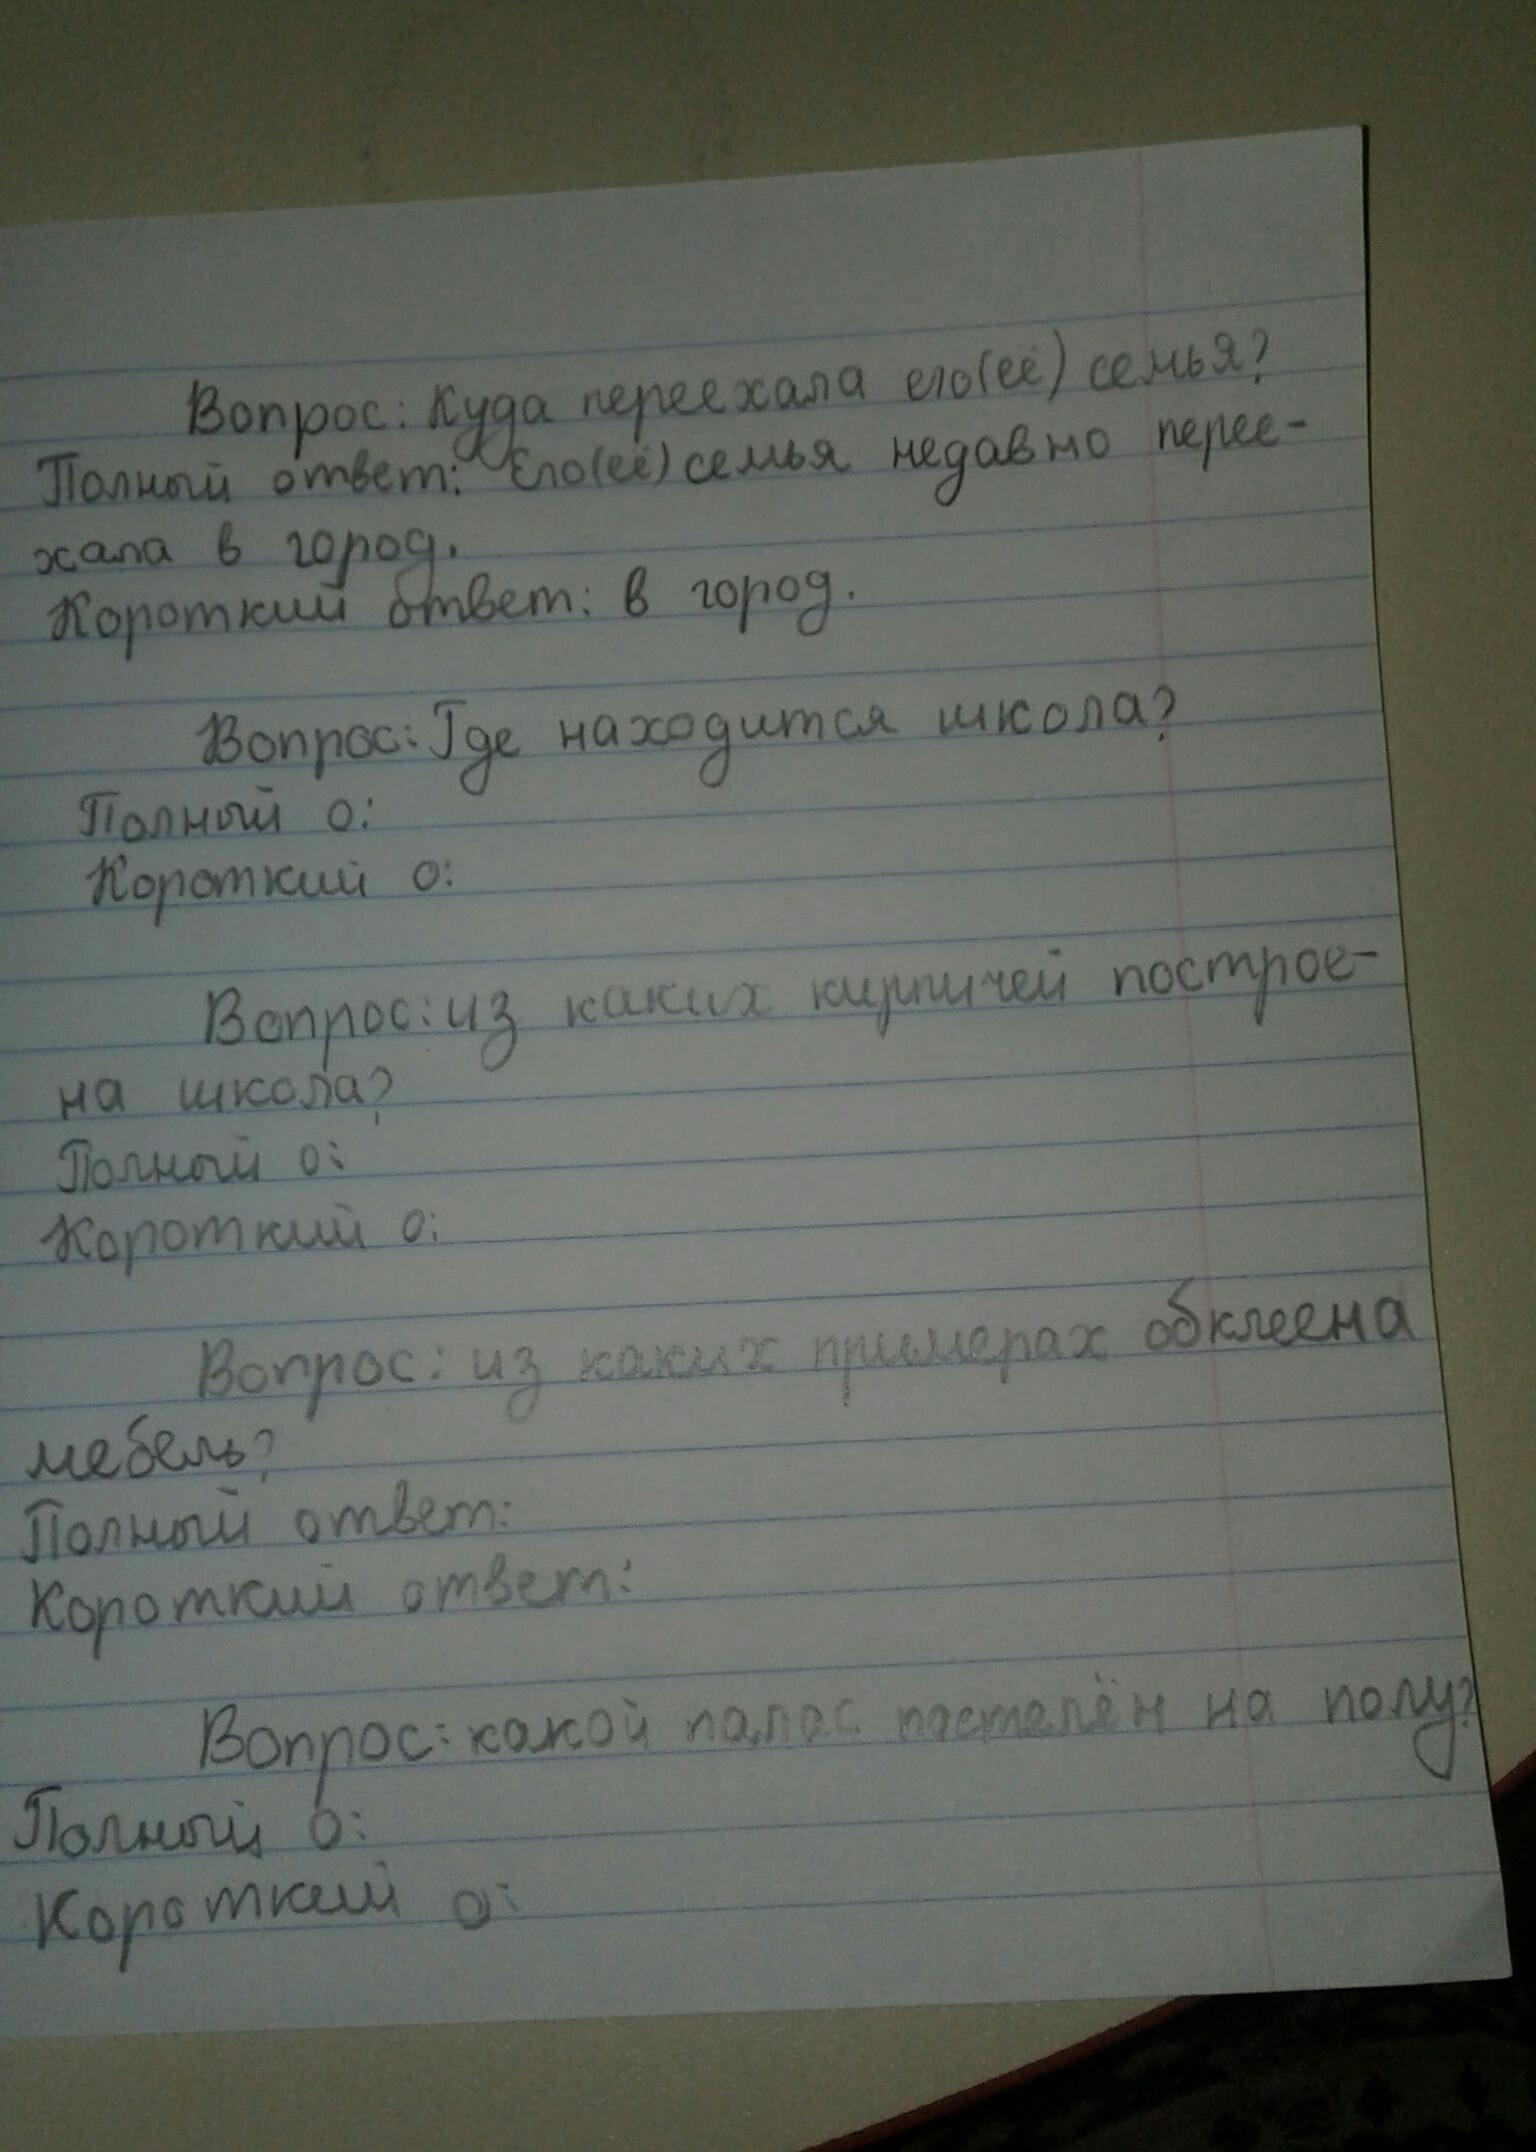 Вопрос: Куда переехала его(её) семья?
Полный ответ: Его(её) семья недавно перее-
хала в город.
Короткий ответ: в город.
Вопрос: Где находится школа?
Полный о:
Короткий о:
Вопрос: из каких кирпичей построе-
на школа?
Полный о:
Короткий о:
Вопрос: из каких примерах обклеена
мебель?
Полный ответ:
Короткий ответ:
Вопрос: какой палас постелён на полу?
Полный о:
Короткий о: